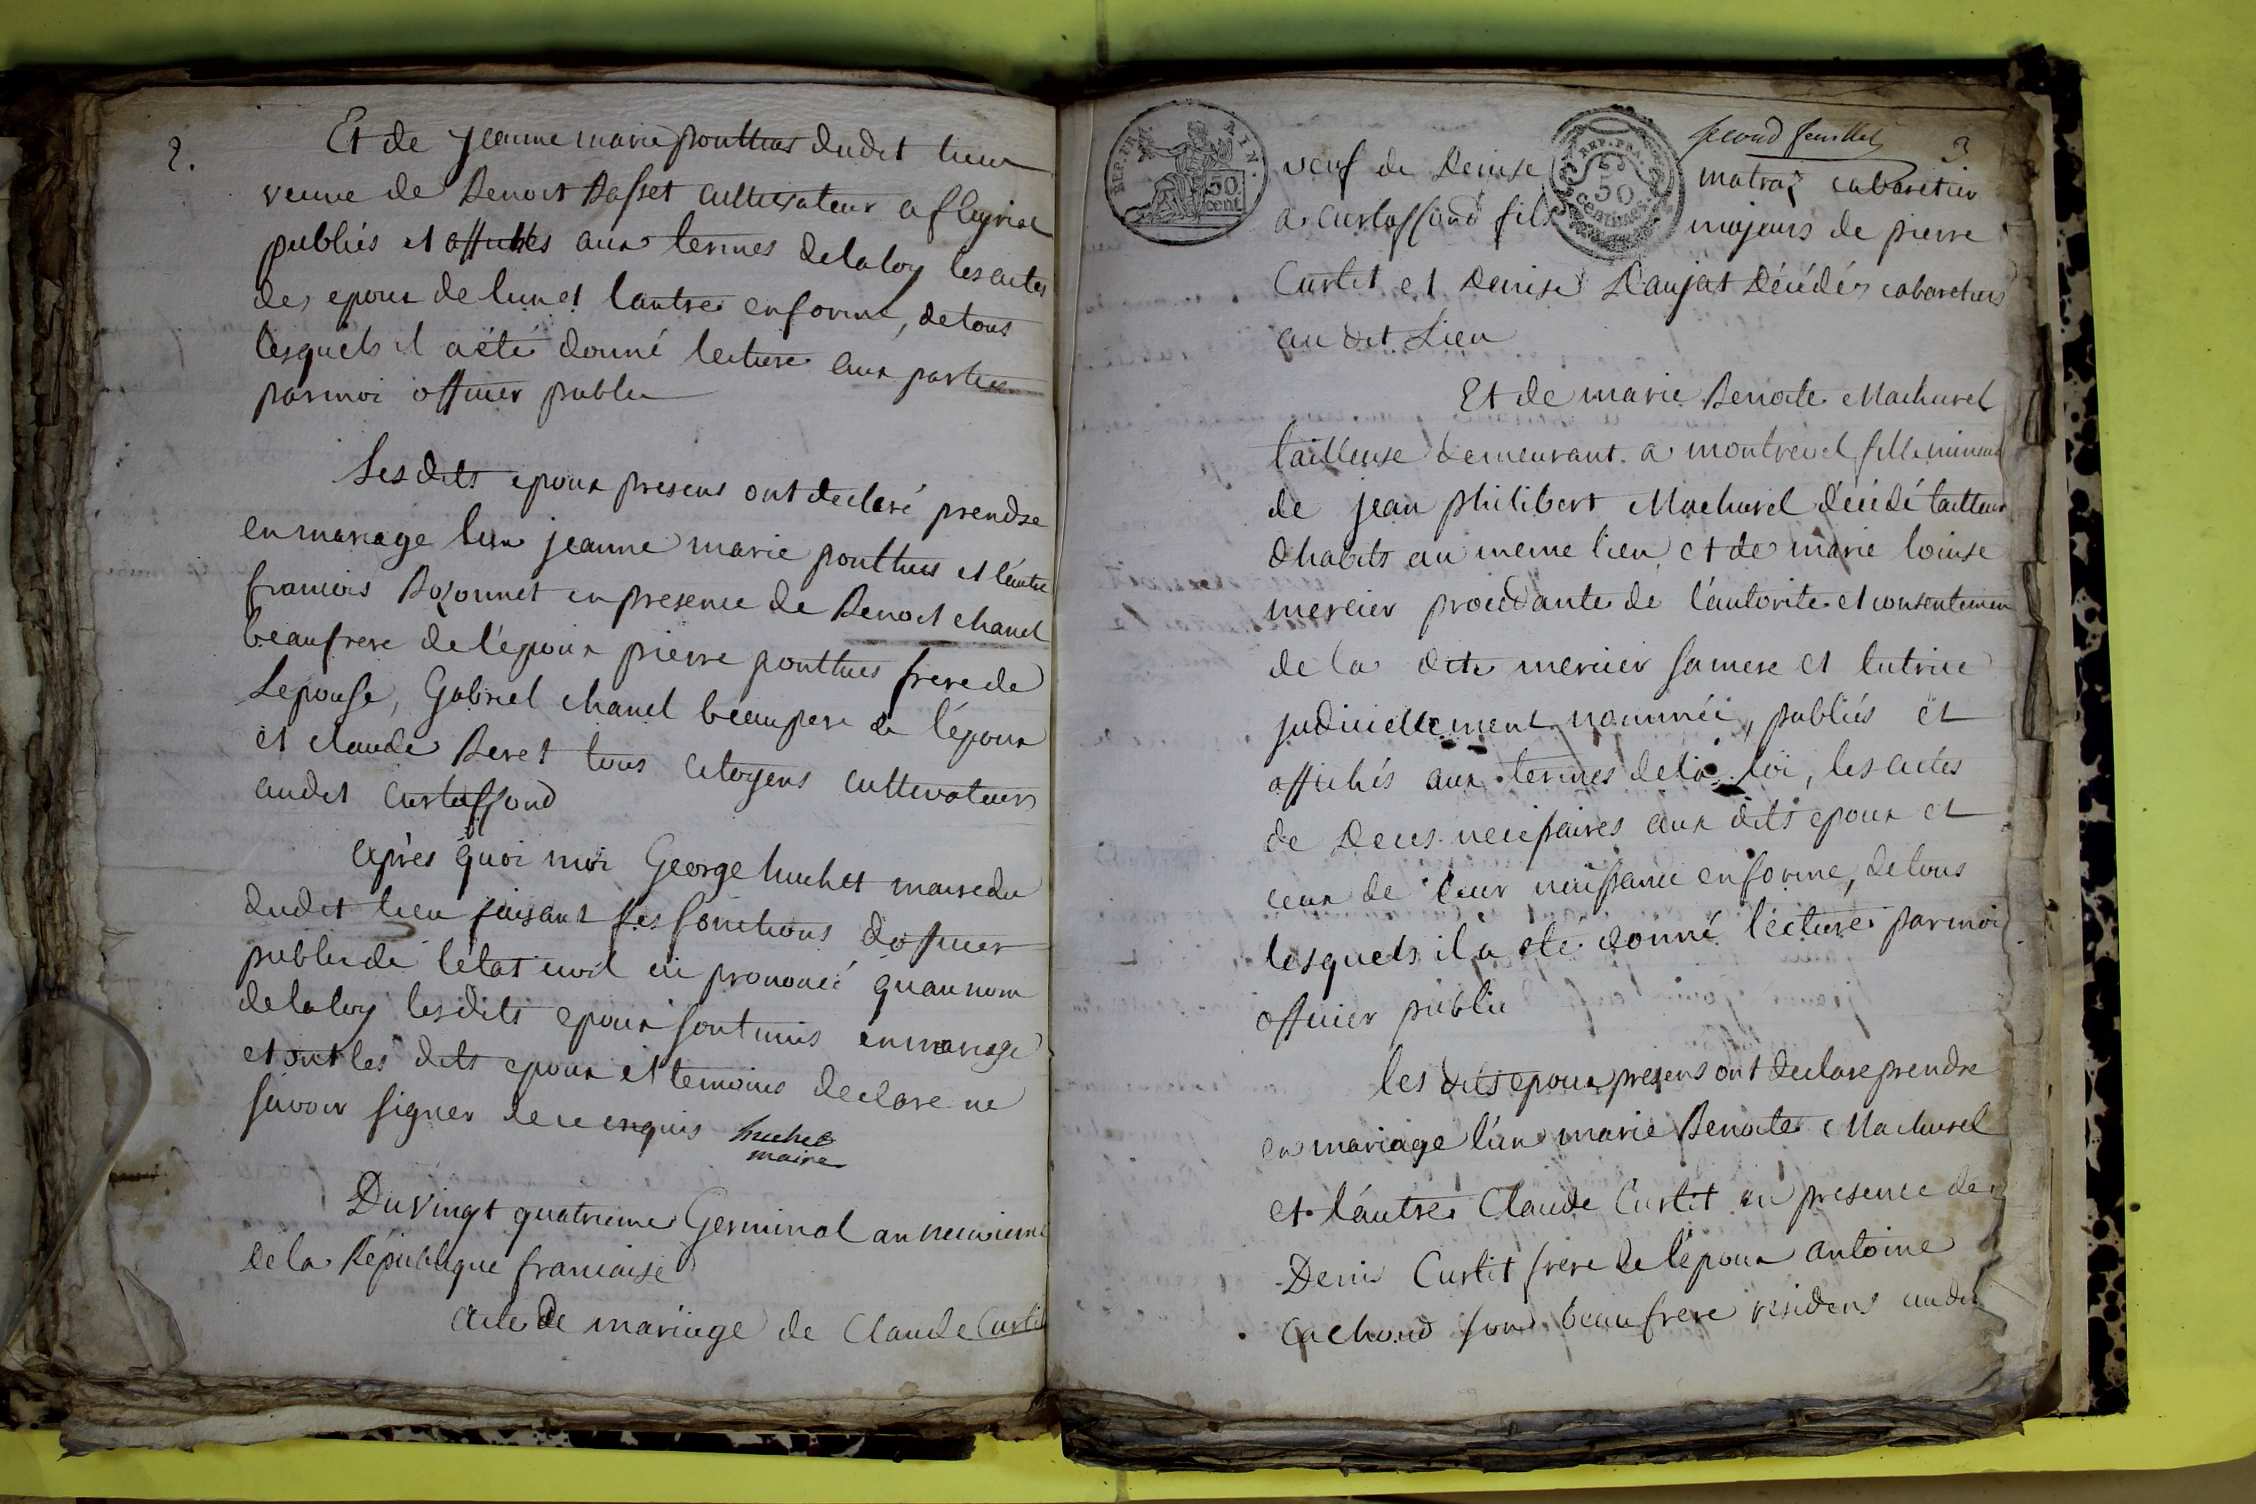 2.
Et de jeanne marie ponthus dudit lieu
veuve de Benoit Basset cultivateur a fleyriat
publiés et affichés aux termes delaloy les actes
des epoux de lun et lautre enforme, detous
lesquels il aété donné lecture aux parties
parmoi officier public
Lesdits epoux presens ont declaré prendre
en mariage lun jeanne marie ponthus et lautre
francois Bozonnet en presence de Benoit chanel
beaufrere de l'époux pierre ponthus frere de
Lepouse, Gabriel chanel beaupere de l'époux
et claude Beret tous citoyens cultivateurs
audit Curtaffond
après quoi moi George huchet maire du
dudit lieu faisant les fonctions dofficier
public de l'état civil ai prononcé quaunom
delaloy lesdits epoux sont unis en mariage
et ont les dits epoux et temoins declare ne
savoir signer de ce enquis huchet
maire
Du vingt quatrieme Germinal an neuvieme
de la République francaise
Acte de mariage de Claude Curtit
REP. FRA. AIN.
50 cent
REP. FRA.
50
centimes
second feuillet
3
veuf de Denise matraz cabaretier
a curtaffond fils majeurs de pierre
Curtit et Denise Daujat Décédés cabaretiers
au dit Lieu
Et de marie Benoite Machurel
tailleuse demeurant a montrevel fille mineure
de jean philibert Machurel décédé tailleur
dhabits au meme lieu et de marie louise
mercier procedante de l'autorite et consentemen
de la dite mercier sa mere et tutrice
judiciellement nommée, publiés et
affichés aux termes dela loi, les actes
de Deces necessaires aux dits epoux et
ceux de leur naissance enforme, de tous
lesquels il a été donné lecture par moi
officier public
les dits epoux presens ont declare prendre
en mariage l'un marie Benoite Machurel
et l'autre Claude Curtit en presence de
Denis Curtit frere de l'époux antoine
Cachond son beaufrere residens audit